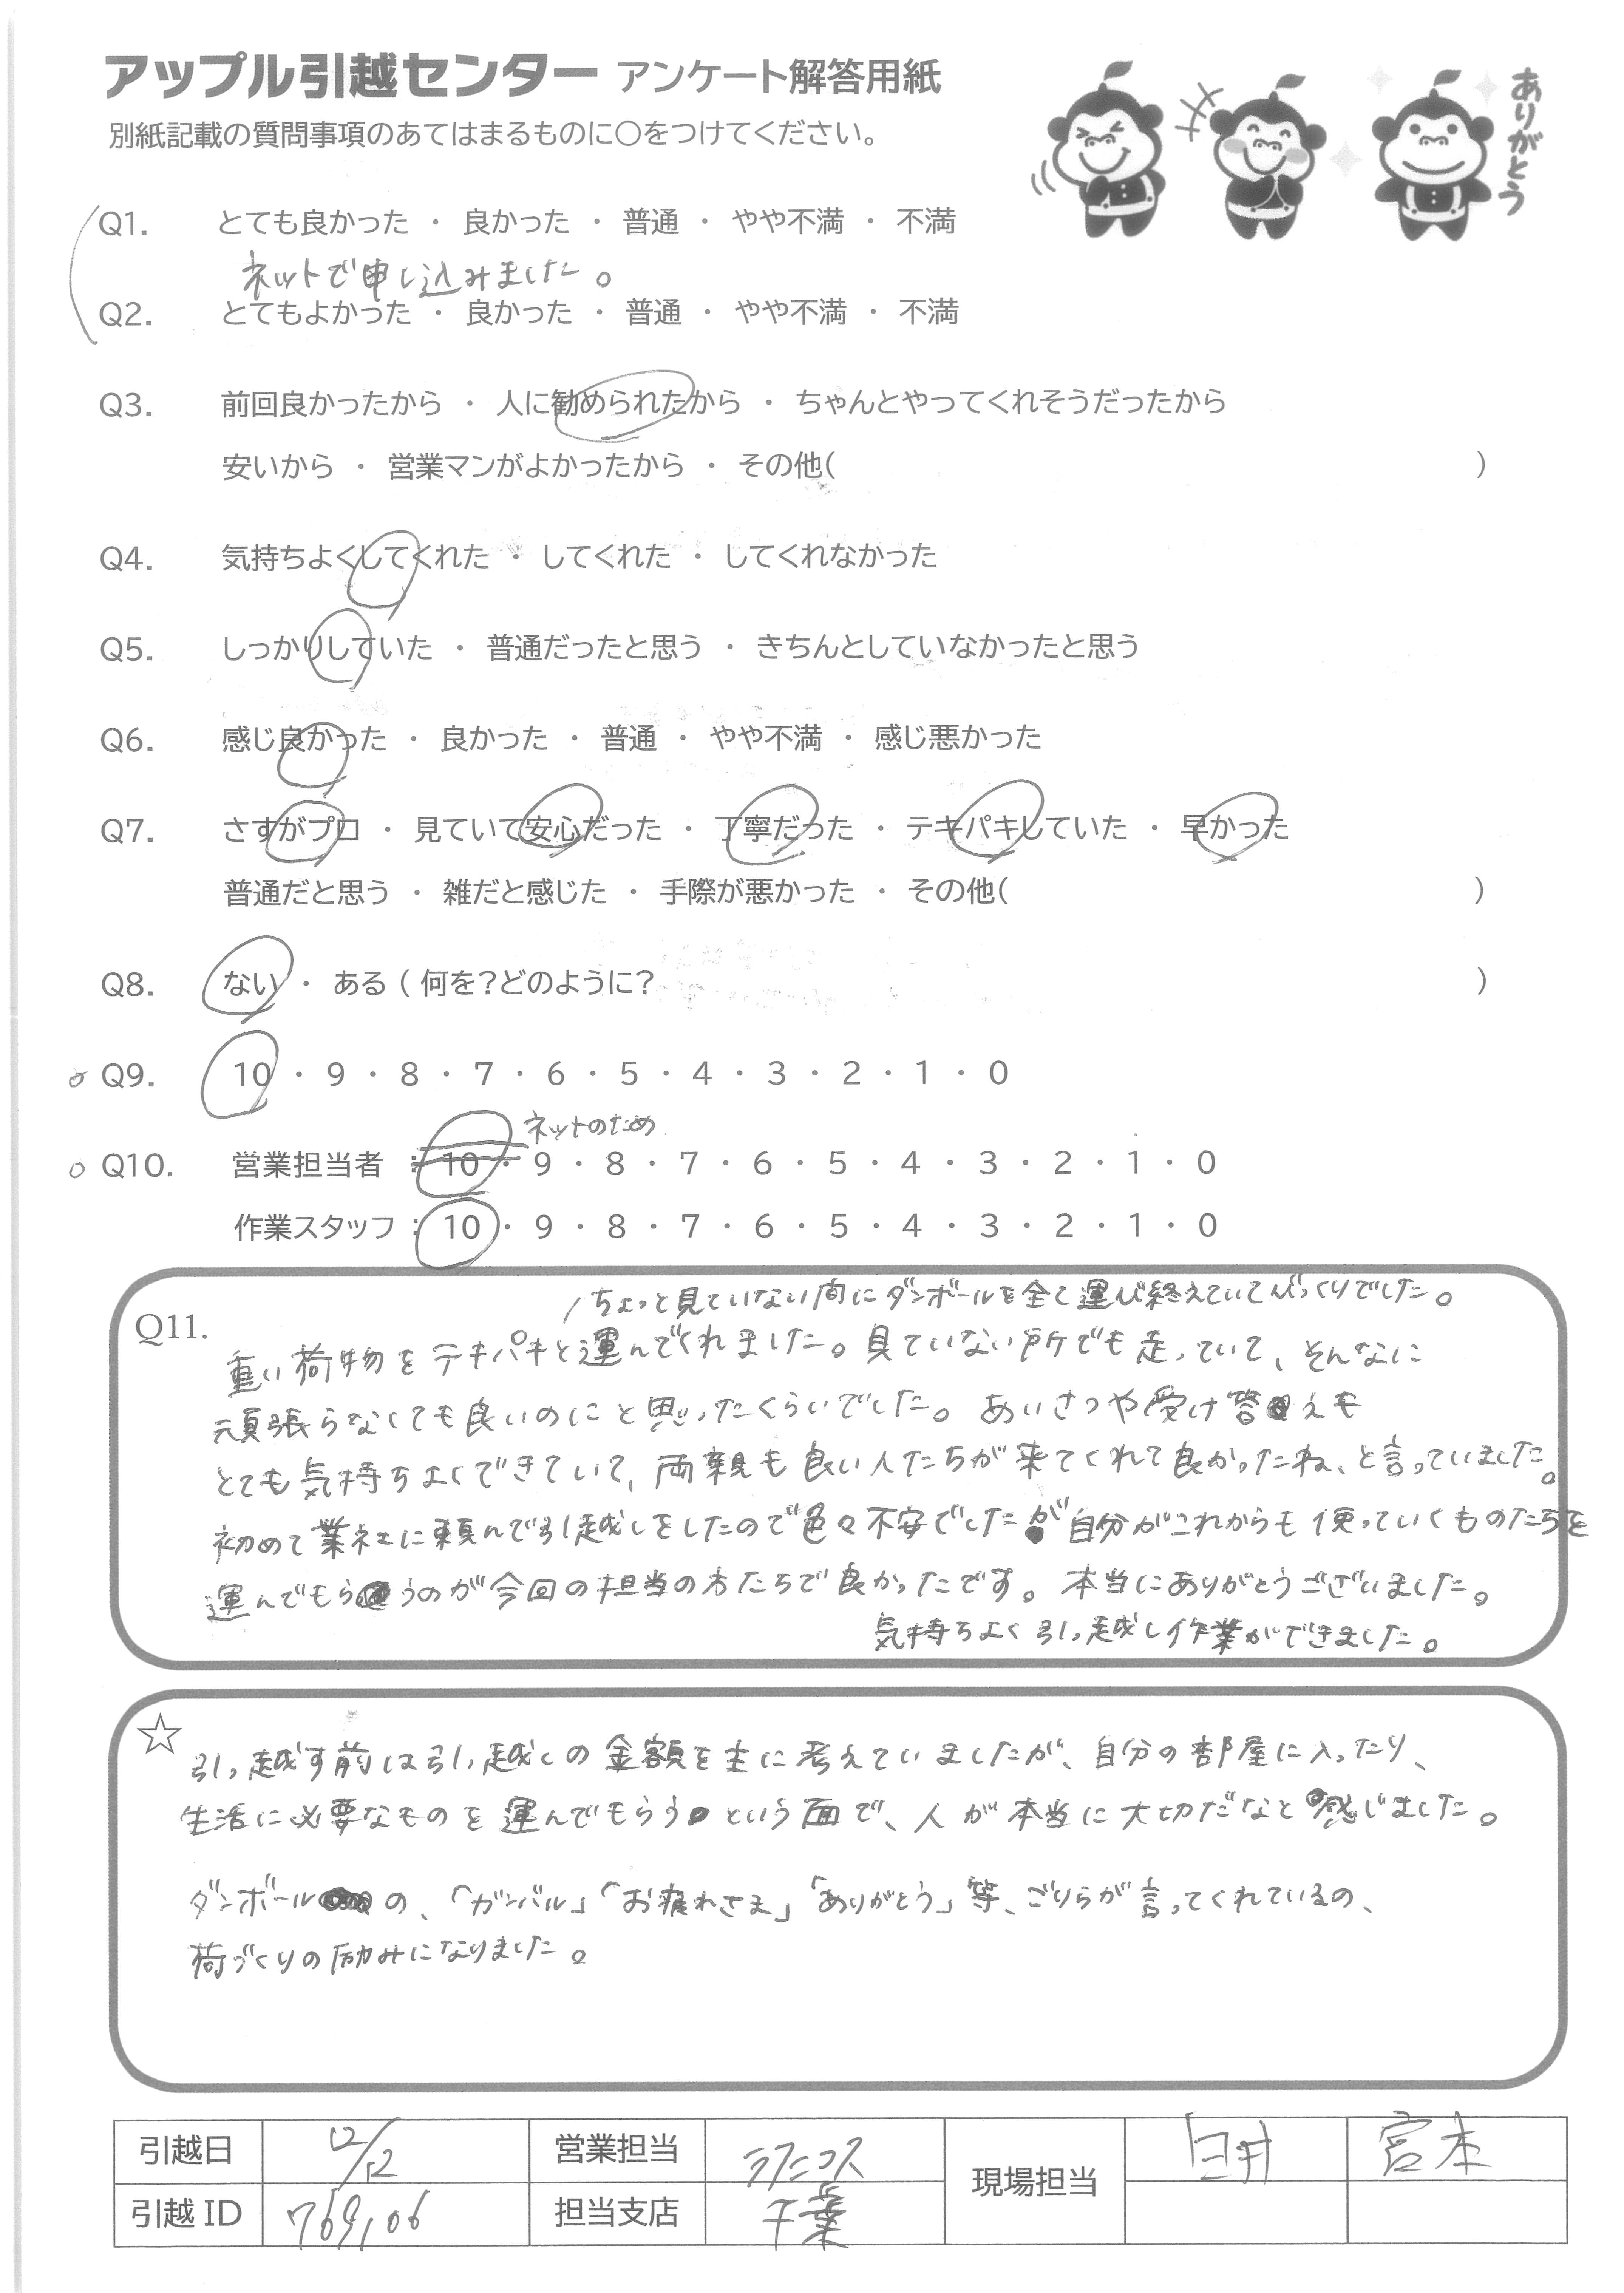 アップル引越センター アンケート解答用紙
別紙記載の質問事項のあてはまるものに○をつけてください。
ありがとう
Q1. とても良かった ・ 良かった ・ 普通 ・ やや不満 ・ 不満
ネットで申し込みました。
Q2. とてもよかった ・ 良かった ・ 普通 ・ やや不満 ・ 不満
Q3. 前回良かったから ・ 人に勧められたから ・ ちゃんとやってくれそうだったから
安いから ・ 営業マンがよかったから ・ その他( )
Q4. 気持ちよくしてくれた ・ してくれた ・ してくれなかった
Q5. しっかりしていた ・ 普通だったと思う ・ きちんとしていなかったと思う
Q6. 感じ良かった ・ 良かった ・ 普通 ・ やや不満 ・ 感じ悪かった
Q7. さすがプロ ・ 見ていて安心だった ・ 丁寧だった ・ テキパキしていた ・ 早かった
普通だと思う ・ 雑だと感じた ・ 手際が悪かった ・ その他( )
Q8. ない ・ ある ( 何を?どのように? )
Q9. 10 ・ 9 ・ 8 ・ 7 ・ 6 ・ 5 ・ 4 ・ 3 ・ 2 ・ 1 ・ 0
ネットのため
Q10. 営業担当者 : 10 ・ 9 ・ 8 ・ 7 ・ 6 ・ 5 ・ 4 ・ 3 ・ 2 ・ 1 ・ 0
作業スタッフ : 10 ・ 9 ・ 8 ・ 7 ・ 6 ・ 5 ・ 4 ・ 3 ・ 2 ・ 1 ・ 0
ちょっと見ていない間にダンボールを全て運び終えていてびっくりでした。
Q11.
重い荷物をテキパキと運んでくれました。見ていない所でも走っていて、そんなに
頑張らなくても良いのにと思ったくらいでした。あいさつや受け答えも
とても気持ちよくできていて、両親も良い人たちが来てくれて良かったね、と言っていました。
初めて業社に頼んで引越しをしたので色々不安でしたが自分がこれからも使っていくものたちを
運んでもらうのが今回の担当の方たちで良かったです。本当にありがとうございました。
気持ちよく引っ越し作業ができました。
☆
引っ越す前は引っ越しの金額を主に考えていましたが、自分の部屋に入ったり、
生活に必要なものを運んでもらうという面で、人が本当に大切だなと感じました。
ダンボールの、「ガンバル」「お疲れさま」「ありがとう」等、ごりらが言ってくれているの、
荷づくりの励みになりました。
引越日 12/12 営業担当 現場担当 臼井 宮本
引越ID 担当支店 千葉